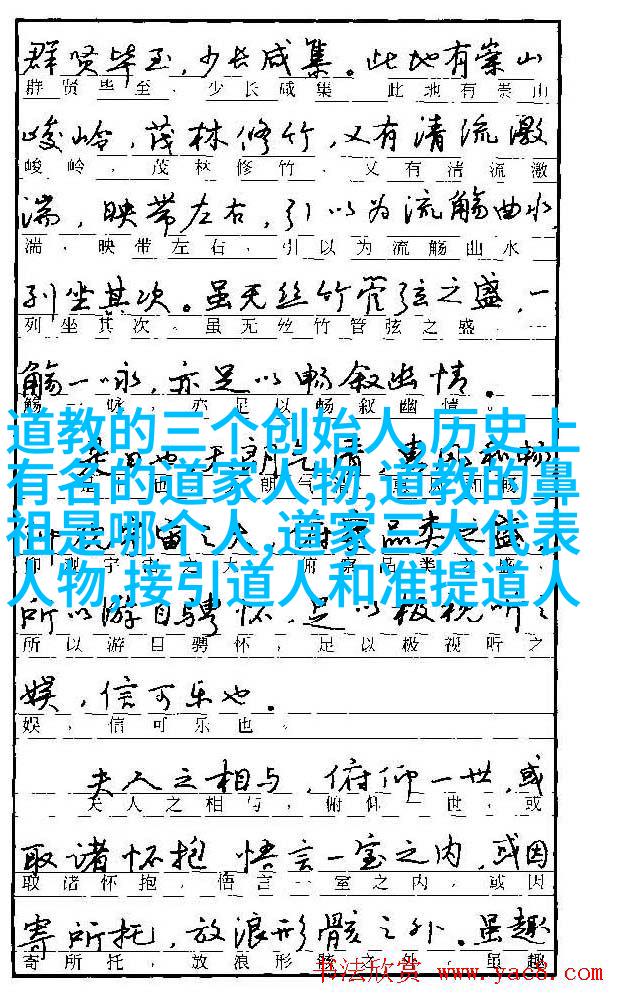 群贤毕至,少长咸集。此地有崇山
群贤毕至、少长咸集 此地有崇山
峻岭,茂林修竹,又有清流激
峻岭,茂林修竹、又有清流激
湍,映带左右,引以为流觞曲水,
湍,映带左右,引以为流觞曲水
列坐其次。虽无丝竹管弦之盛,一
列坐其次。虽无丝竹管弦之盛,一
觞一咏,亦足以畅叙幽情。
觞一咏,亦足以畅叙幽情。
道教的三个创始人,历史上
有名的道家人物,道教的鼻
祖是哪个人,道家三大代表
人物,接引道人和准提道人
所以游目骋怀,足以极视听之
所以游目骋怀,足以极视听之
娱,信可乐也。
娱,信可乐也。
夫人之相与,俯仰一世,或
夫人之相与,俯仰一世,或
取诸怀抱 悟言一室之内,或因
取诸怀抱,悟言一室之内,或因
寄所托,放浪形骸之外。虽趣
寄所托,放浪形骸之外。虽趣
书法欣赏 www.yac8.com